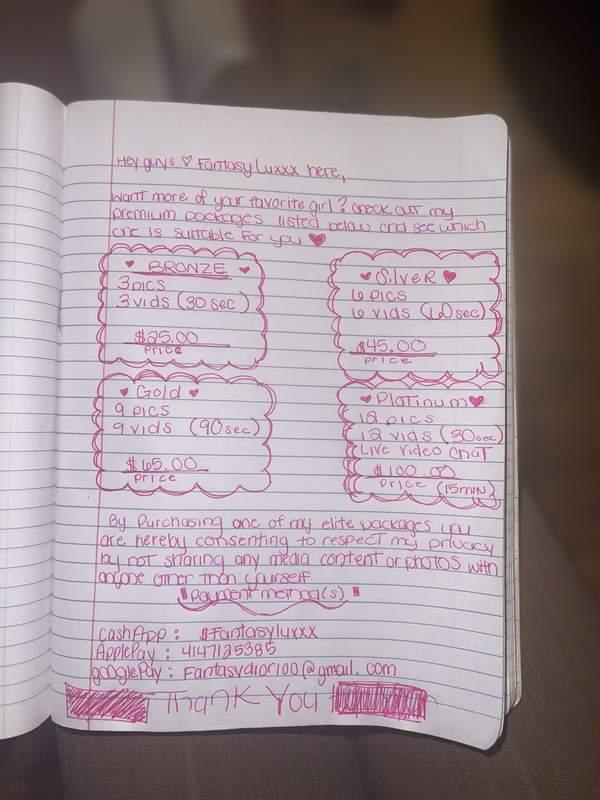 Hey guys ♡ Fantasy Luxxx here,
want more of your favorite girl? check out my
premium packages listed below and see which
one is suitable for you ♥
♥ BRONZE ♥
3 pics
3 vids (30 sec)
$25.00
price
♥ Silver ♥
6 pics
6 vids (60 sec)
$45.00
price
♥ Gold ♥
9 pics
9 vids (90 sec)
$65.00
price
♥ Platinum ♥
12 pics
12 vids (30 sec)
Live video chat
$100.00
price (15min)
By Purchasing one of my elite packages you
are hereby consenting to respect my privacy
by not sharing any media content or photos with
anyone other than yourself.
"Payment method(s)"
cashApp: $Fantasyluxxx
ApplePay: 4147125385
googlePay: Fantasydior100@gmail.com
Thank You